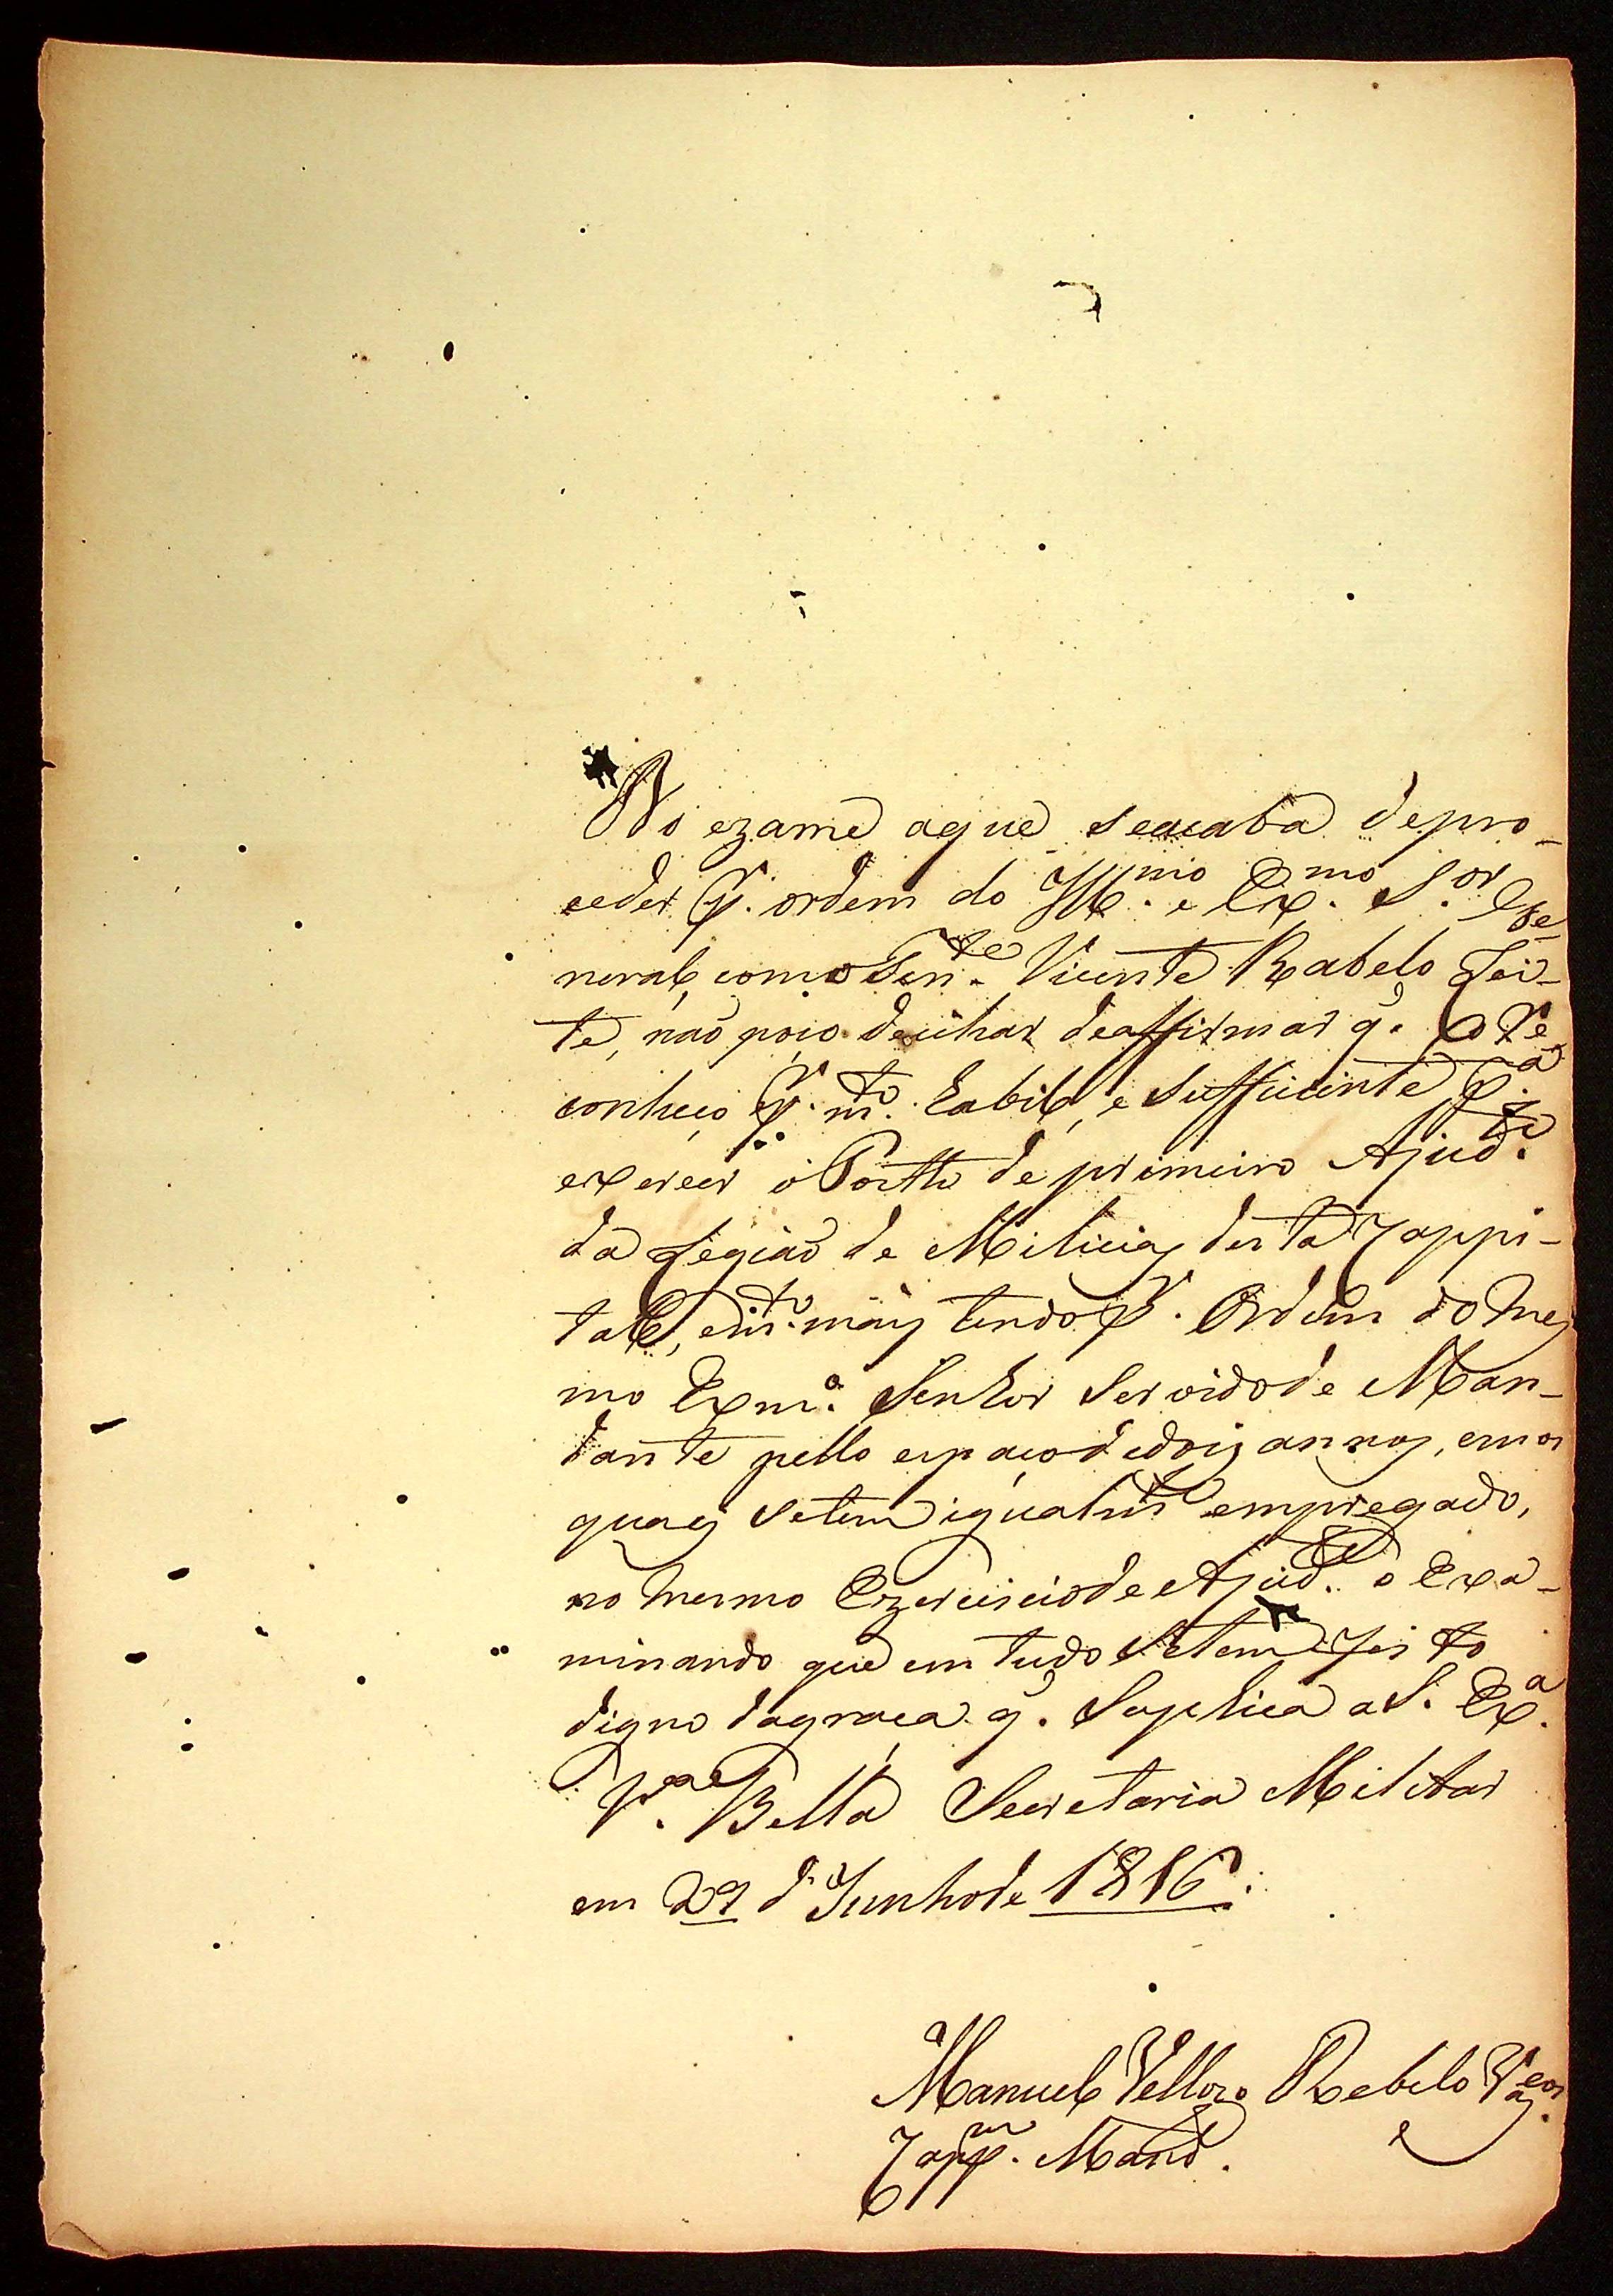 No ezame aque seacaba depro-
ceder pr. ordem do Illmo. e Exmo. Sor. Ge-
neral, como Tente. Vicente Rabelo Lei-
te, naõ poço deichar deaffirmar q. o Re
conheço pr. mto. habil, e sufficiente pa.
exercer o Posto de primeiro Ajude.
da Legiaõ de Milicias desta Cappi-
tal, e mto. mais tendo pr. Ordem do mes
mo Exmo. Senhor Servido de Man-
dante pello espaço dedois annos, em os
quais setem igualmte. empregado,
no mesmo Ezercicio de Ajude. o Exa-
minando que em tudo setem feito
digno dagraça q. Suplica a S. Exa.
Va. Bella Secretaria Militar
em 27 d' Junho de 1816.
Manuel Vellozo Rebelo Vasos.
Cappm. Mand.